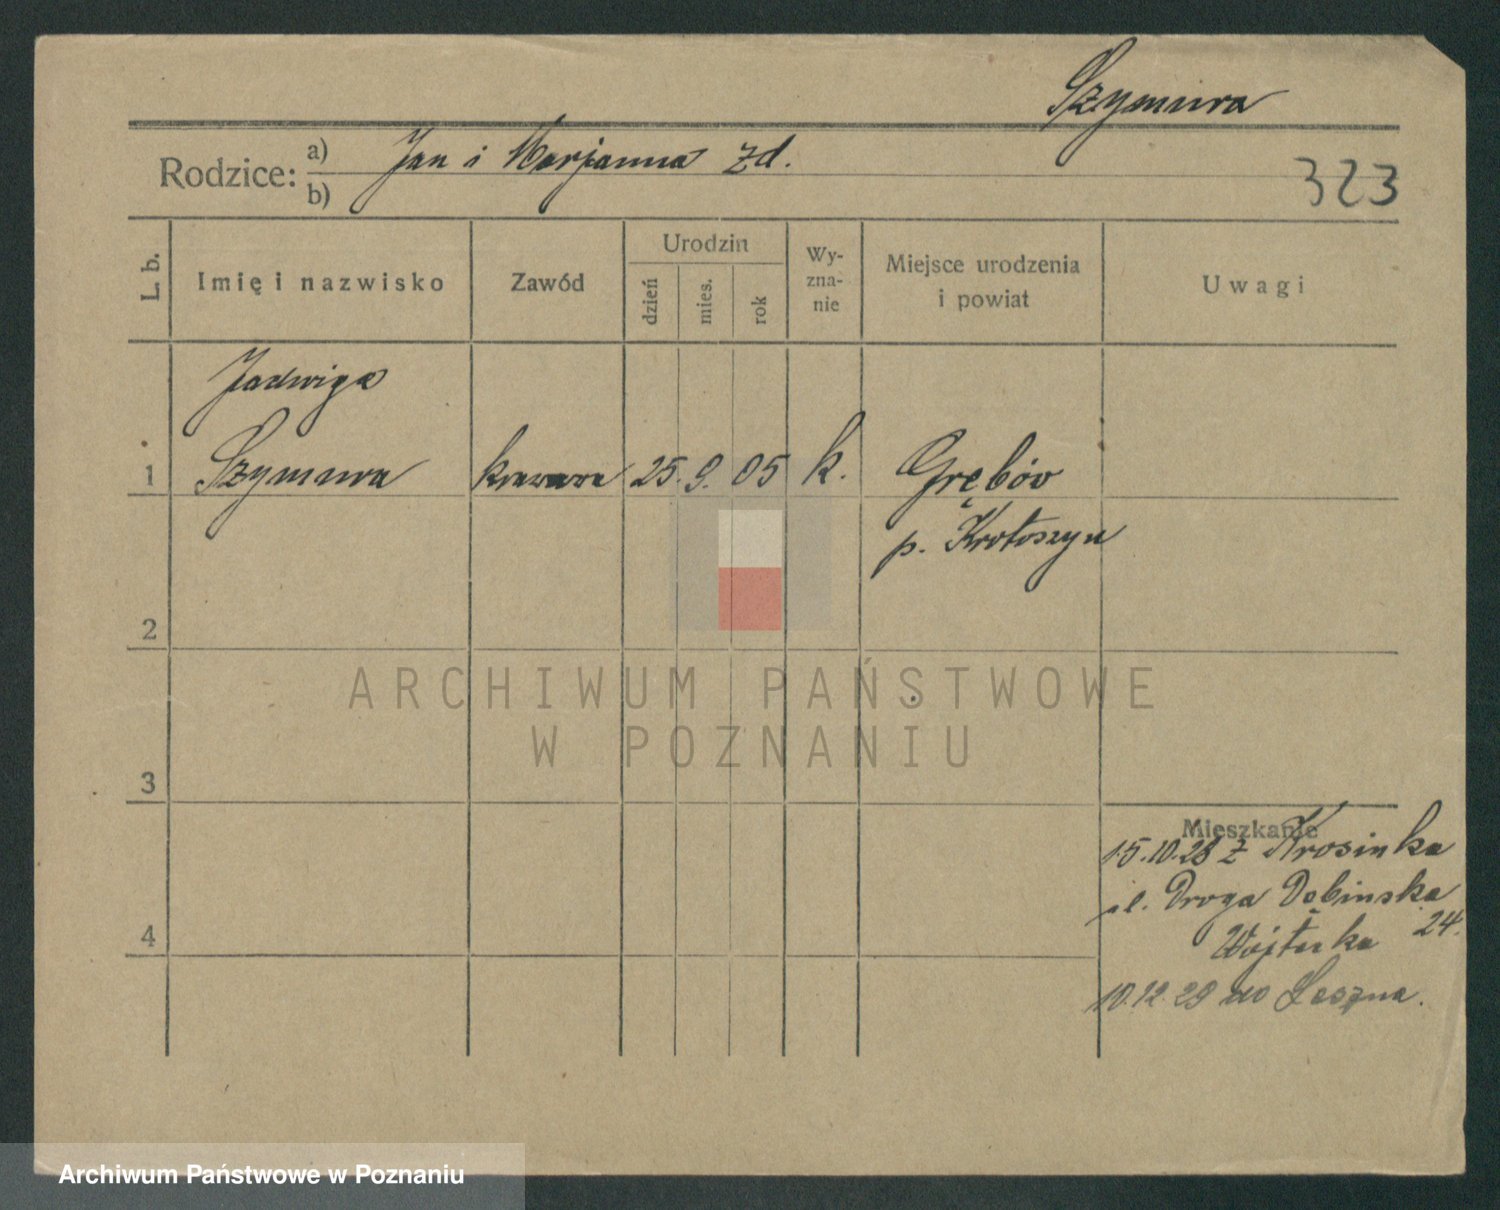 Szymura
Rodzice: a) Jan i Marjanna zd.
b)
323
L. b.
Imię i nazwisko
Zawód
Urodzin
dzień
mies.
rok
Wy-
zna-
nie
Miejsce urodzenia
i powiat
Uwagi
Jadwiga
1 Szymura krawcowa 25. 9. 05 k. Grębów
p. Krotoszyn
2
3
4
ARCHIWUM PAŃSTWOWE
W POZNANIU
Mieszkanie
15.10.28 z Krosinka
ul. Droga Dębinska
24.
Wojterka
10.12.29 do Leszna.
Archiwum Państwowe w Poznaniu